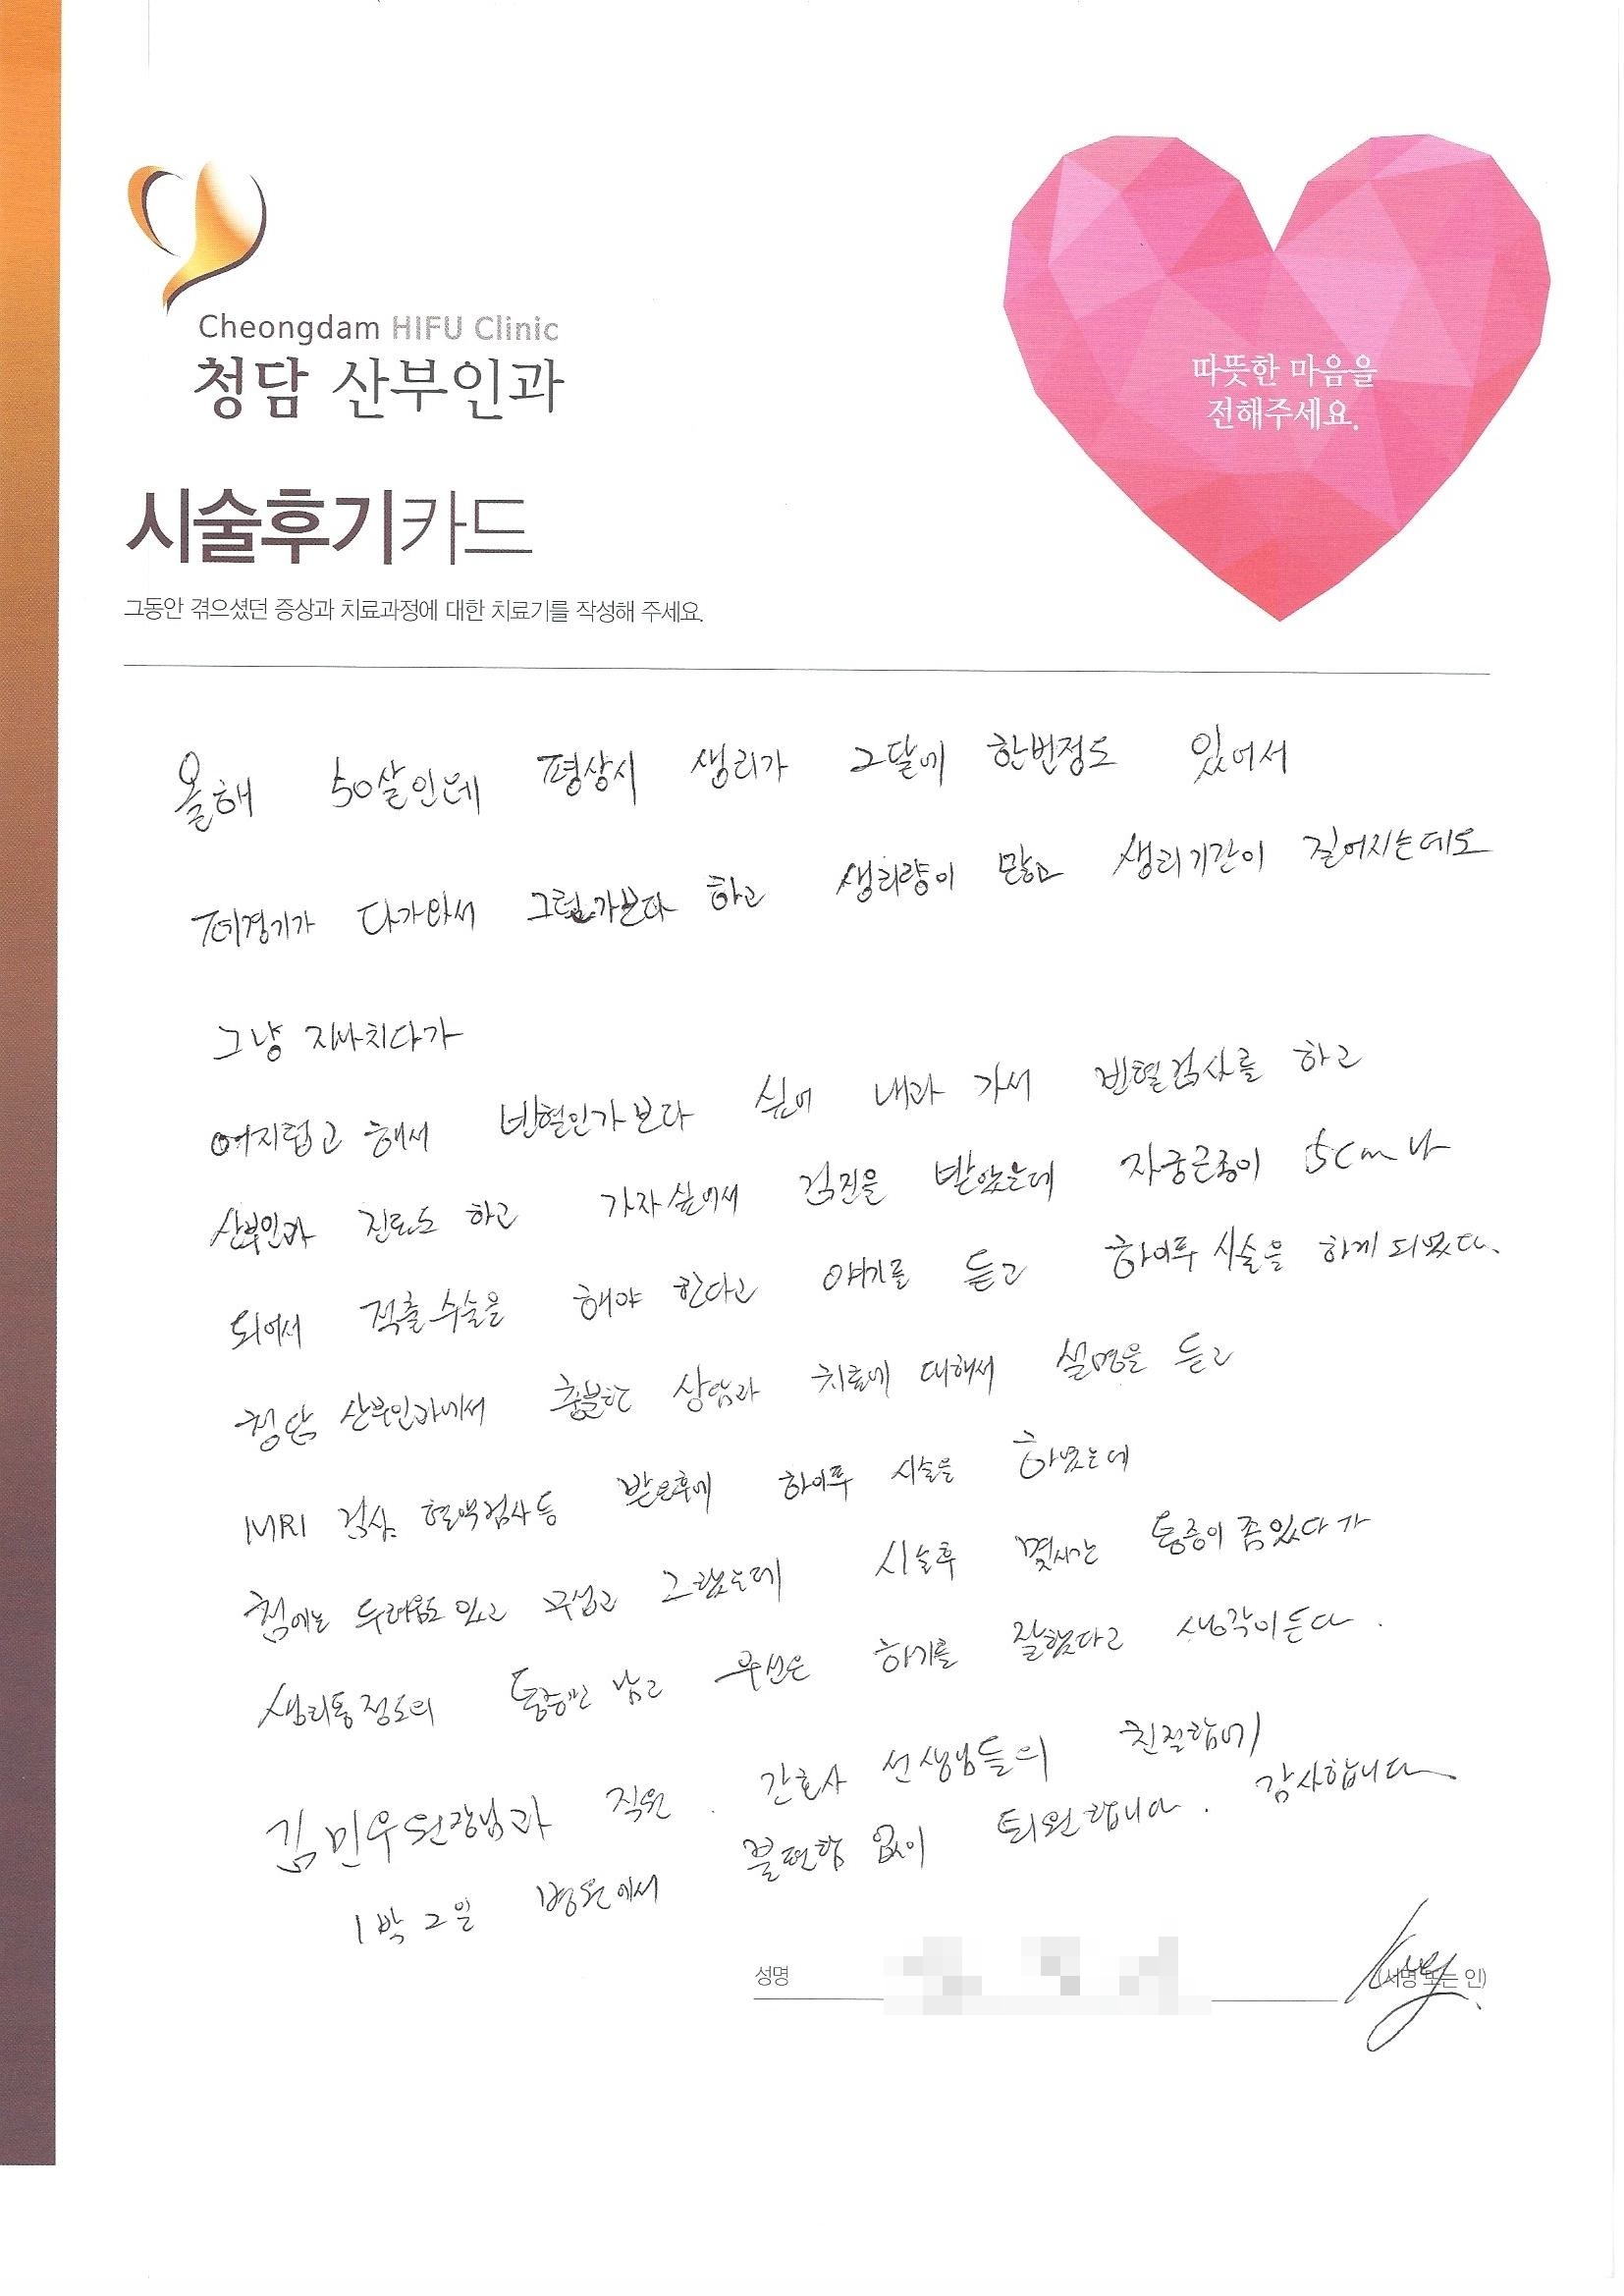 Cheongdam HIFU Clinic
청담 산부인과
따뜻한 마음을
전해주세요.
시술후기카드
그동안 겪으셨던 증상과 치료과정에 대한 치료기를 작성해 주세요.
올해 50살인데 평상시 생리가 2달에 한번정도 있어서
폐경기가 다가와서 그런가보다 하고 생리량이 많고 생리기간이 길어지는데도
그냥 지나치다가
어지럽고 해서 빈혈인가보다 싶어 내과 가서 빈혈검사를 하고
산부인과 진료도 하고 가자싶어서 검진을 받았는데 자궁근종이 5cm나
되어서 적출수술을 해야 한다고 얘기를 듣고 하이푸 시술을 하게되었다.
청담 산부인과에서 충분한 상담과 치료에 대해서 설명을 듣고
MRI 검사, 혈액검사등 받은후에 하이푸 시술을 하였는데
첨에는 두려움도 있고 무섭고 그랬는데 시술후 몇시간 통증이 좀있다가
생리통정도의 통증만 남고 우선은 하기를 잘했다고 생각이든다.
김민우원장님과 직원, 간호사 선생님들의 친절함에
1박 2일 병원에서 불편함 없이 퇴원합니다. 감사합니다
성명 (서명 또는 인)